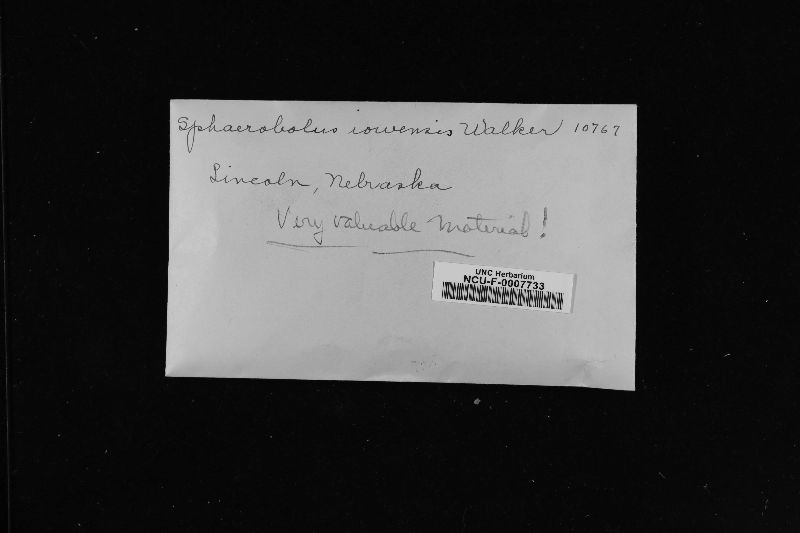 Sphaerobolus iowensis Walker 10767
Lincoln, Nebraska
Very valuable material!
UNC Herbarium
NCU-F-0007733